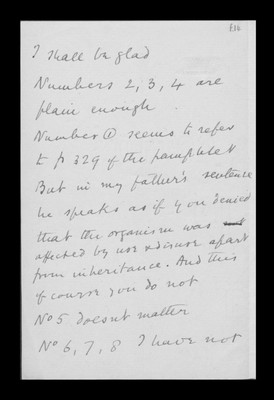 I shall be glad
Numbers 2, 3, 4 are
plain enough.
Number ① seems to refer
to p 329 of the pamphlet
But in my father's sentence
he speaks as if you denied
that the organism was
affected by use & disuse apart
from inheritance. And this
of course you do not
No 5 doesnt matter
No 6, 7, 8 I have not